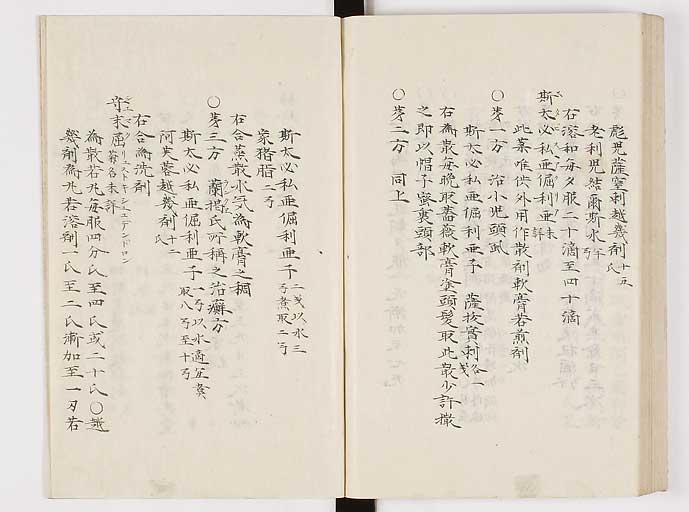 彪児薩窒刺越幾剤 十五氏
老利児結爾斯水 半弓
右溶和毎夕服二十滴至四十滴
斯太必私亜倔利亜 未詳
此薬唯供外用作散剤軟膏若煎剤
○第一方 治小児頭虱
斯太必私亜倔利亜子 薩抜實刺 各一戔
右為散毎晩取薔薇軟膏塗頭髪取此散少許撒
之即以帽子密裹頭部
○第二方 同上
斯太必私亜倔利亜子 二戔以水三弓煮取二弓
家猪脂 二弓
右合蒸散水気為軟膏之稠
○第三方 蘭掲氏所称之治癬方
斯太必私亜倔利亜子 一弓以水適宜煮取八弓至十弓
阿芙蓉越幾剤 十二氏
右合為洗剤
為散若丸毎服四分氏至四氏或二十氏○越
幾剤為丸若溶剤一氏至二氏漸加至一刃若